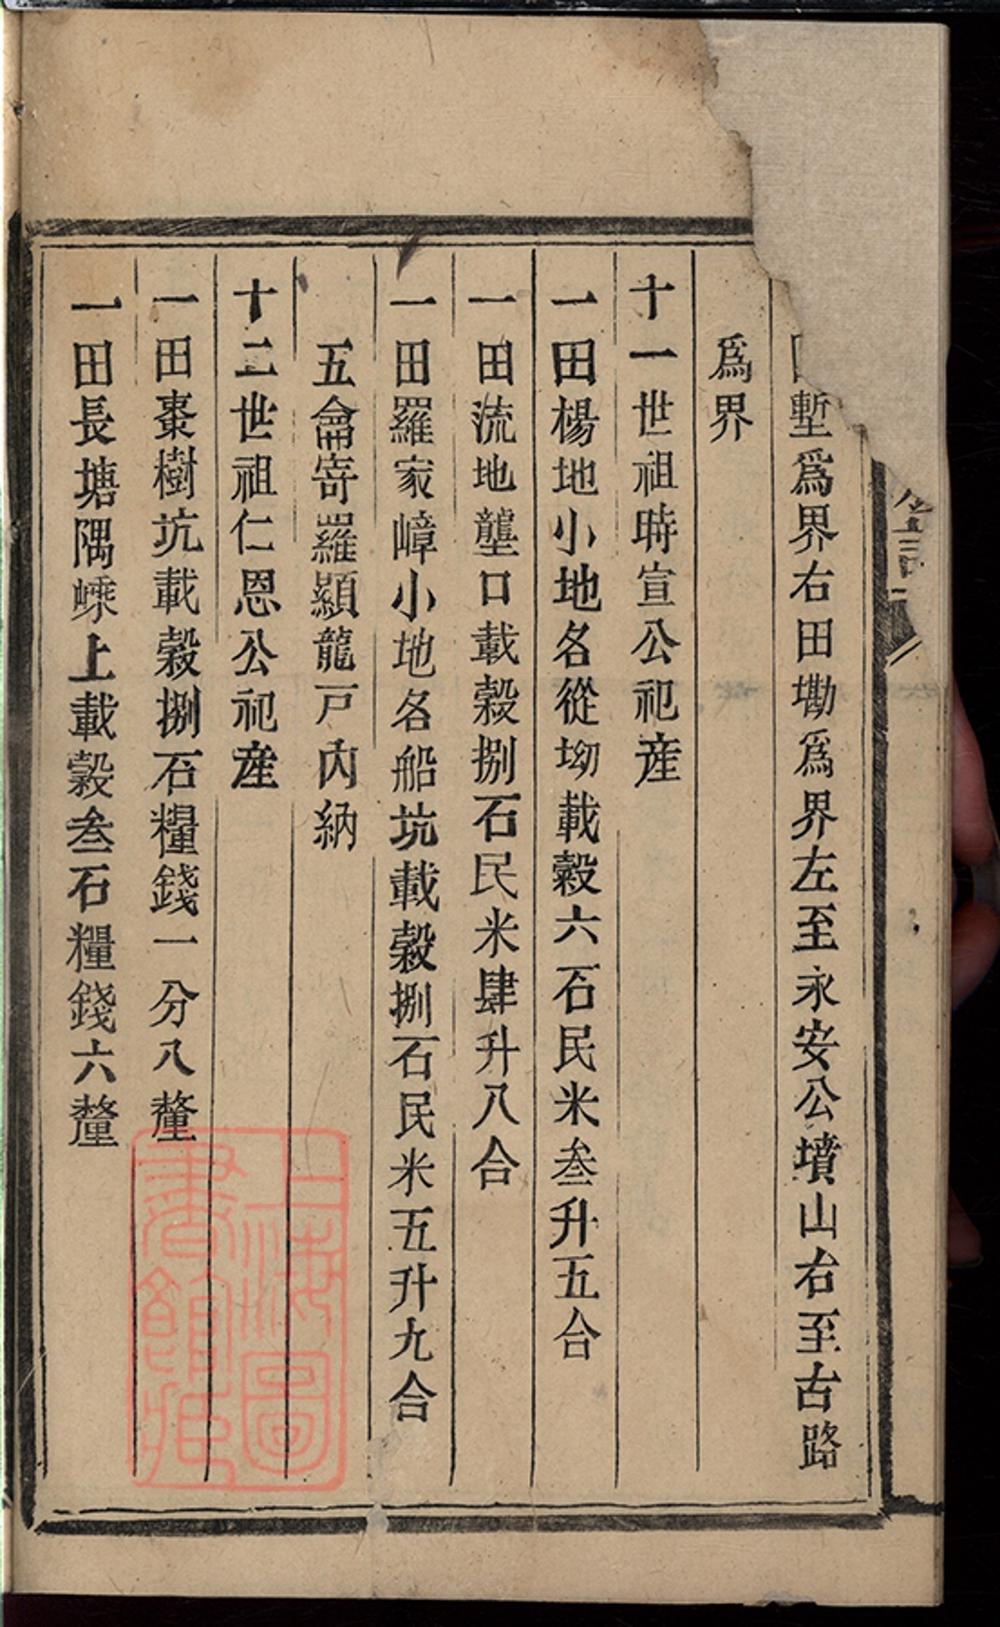 塹爲界右田墈爲界左至永安公墳山右至古路
爲界
十一世祖時宣公祀産
一田楊地小地名從坳載穀六石民米叁升五合
一田流地壟口載穀捌石民米肆升八合
一田羅家嶂小地名船坑載穀捌石民米五升九合
五龠寄羅顯龍戸內納
十二世祖仁恩公祀産
一田棗樹坑載穀捌石糧錢一分八釐
一田長塘隅嵊上載穀叁石糧錢六釐
上海圖
書館藏